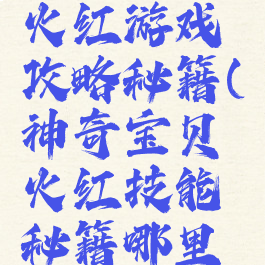 火红游戏
攻略秘籍(
神奇宝贝
火红技能
秘籍哪里